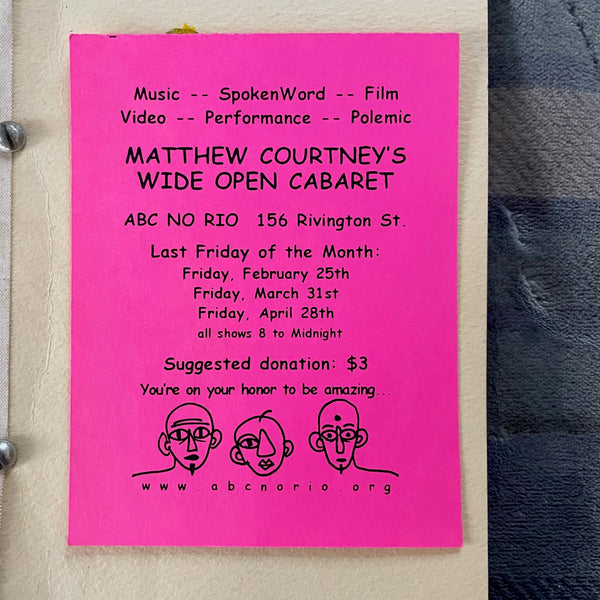 Music -- SpokenWord -- Film
Video -- Performance -- Polemic
MATTHEW COURTNEY'S
WIDE OPEN CABARET
ABC NO RIO 156 Rivington St.
Last Friday of the Month:
Friday, February 25th
Friday, March 31st
Friday, April 28th
all shows 8 to Midnight
Suggested donation: $3
You're on your honor to be amazing...
www.abcnorio.org